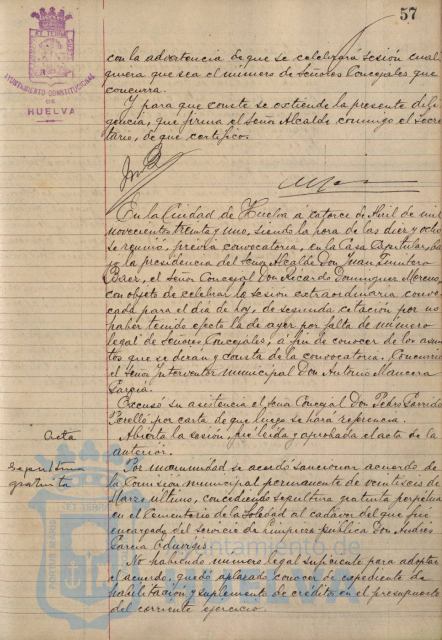 57
AYUNTAMIENTO CONSTITUCIONAL
DE
HUELVA
con la advertencia de que se celebrará sesión cual
quiera que sea el número de Señores Concejales que
concurra.
Y para que conste se extiende la presente dili
gencia, que firma el Señor Alcalde conmigo el Secre
tario, de que certifico.
En la Ciudad de Huelva á catorce de Abril de mil
novecientos treinta y uno, siendo la hora de las diez y ocho
se reunió, previa convocatoria, en la Casa Capitular, ba
jo la presidencia del Señor Alcalde Don Juan Quintero
Baez, el Señor Concejal Don Ricardo Dominguez Moreno,
con objeto de celebrar la sesión extraordinaria convo
cada para el día de hoy, de segunda citación por no
haber tenido efecto la de ayer por falta de número
legal de Señores Concejales, á fin de conocer de los asun
tos que se dirán y consta de la convocatoria. Concurrió
el Señor Interventor municipal Don Antonio Mancera
García.
Excusó su asistencia el Señor Concejal Don Pedro Garrido
Perelló por carta de que luego se hará referencia.
Acta
Abierta la sesión, fué leída y aprobada el acta de la
anterior.
Sepultura
gratuita
Por unanimidad se acordó sancionar acuerdo de
la Comisión municipal permanente de veintiseis de
Marzo último, concediendo sepultura gratuita perpetua
en el Cementerio de la Soledad al cadáver del que fué
encargado del servicio de limpieza pública Don Andrés
García
No habiendo número legal suficiente para adoptar
el acuerdo, quedó aplazado conocer de expediente de
habilitación y suplemento de créditos en el presupuesto
del corriente ejercicio.
Ayuntamiento de
HUELVA